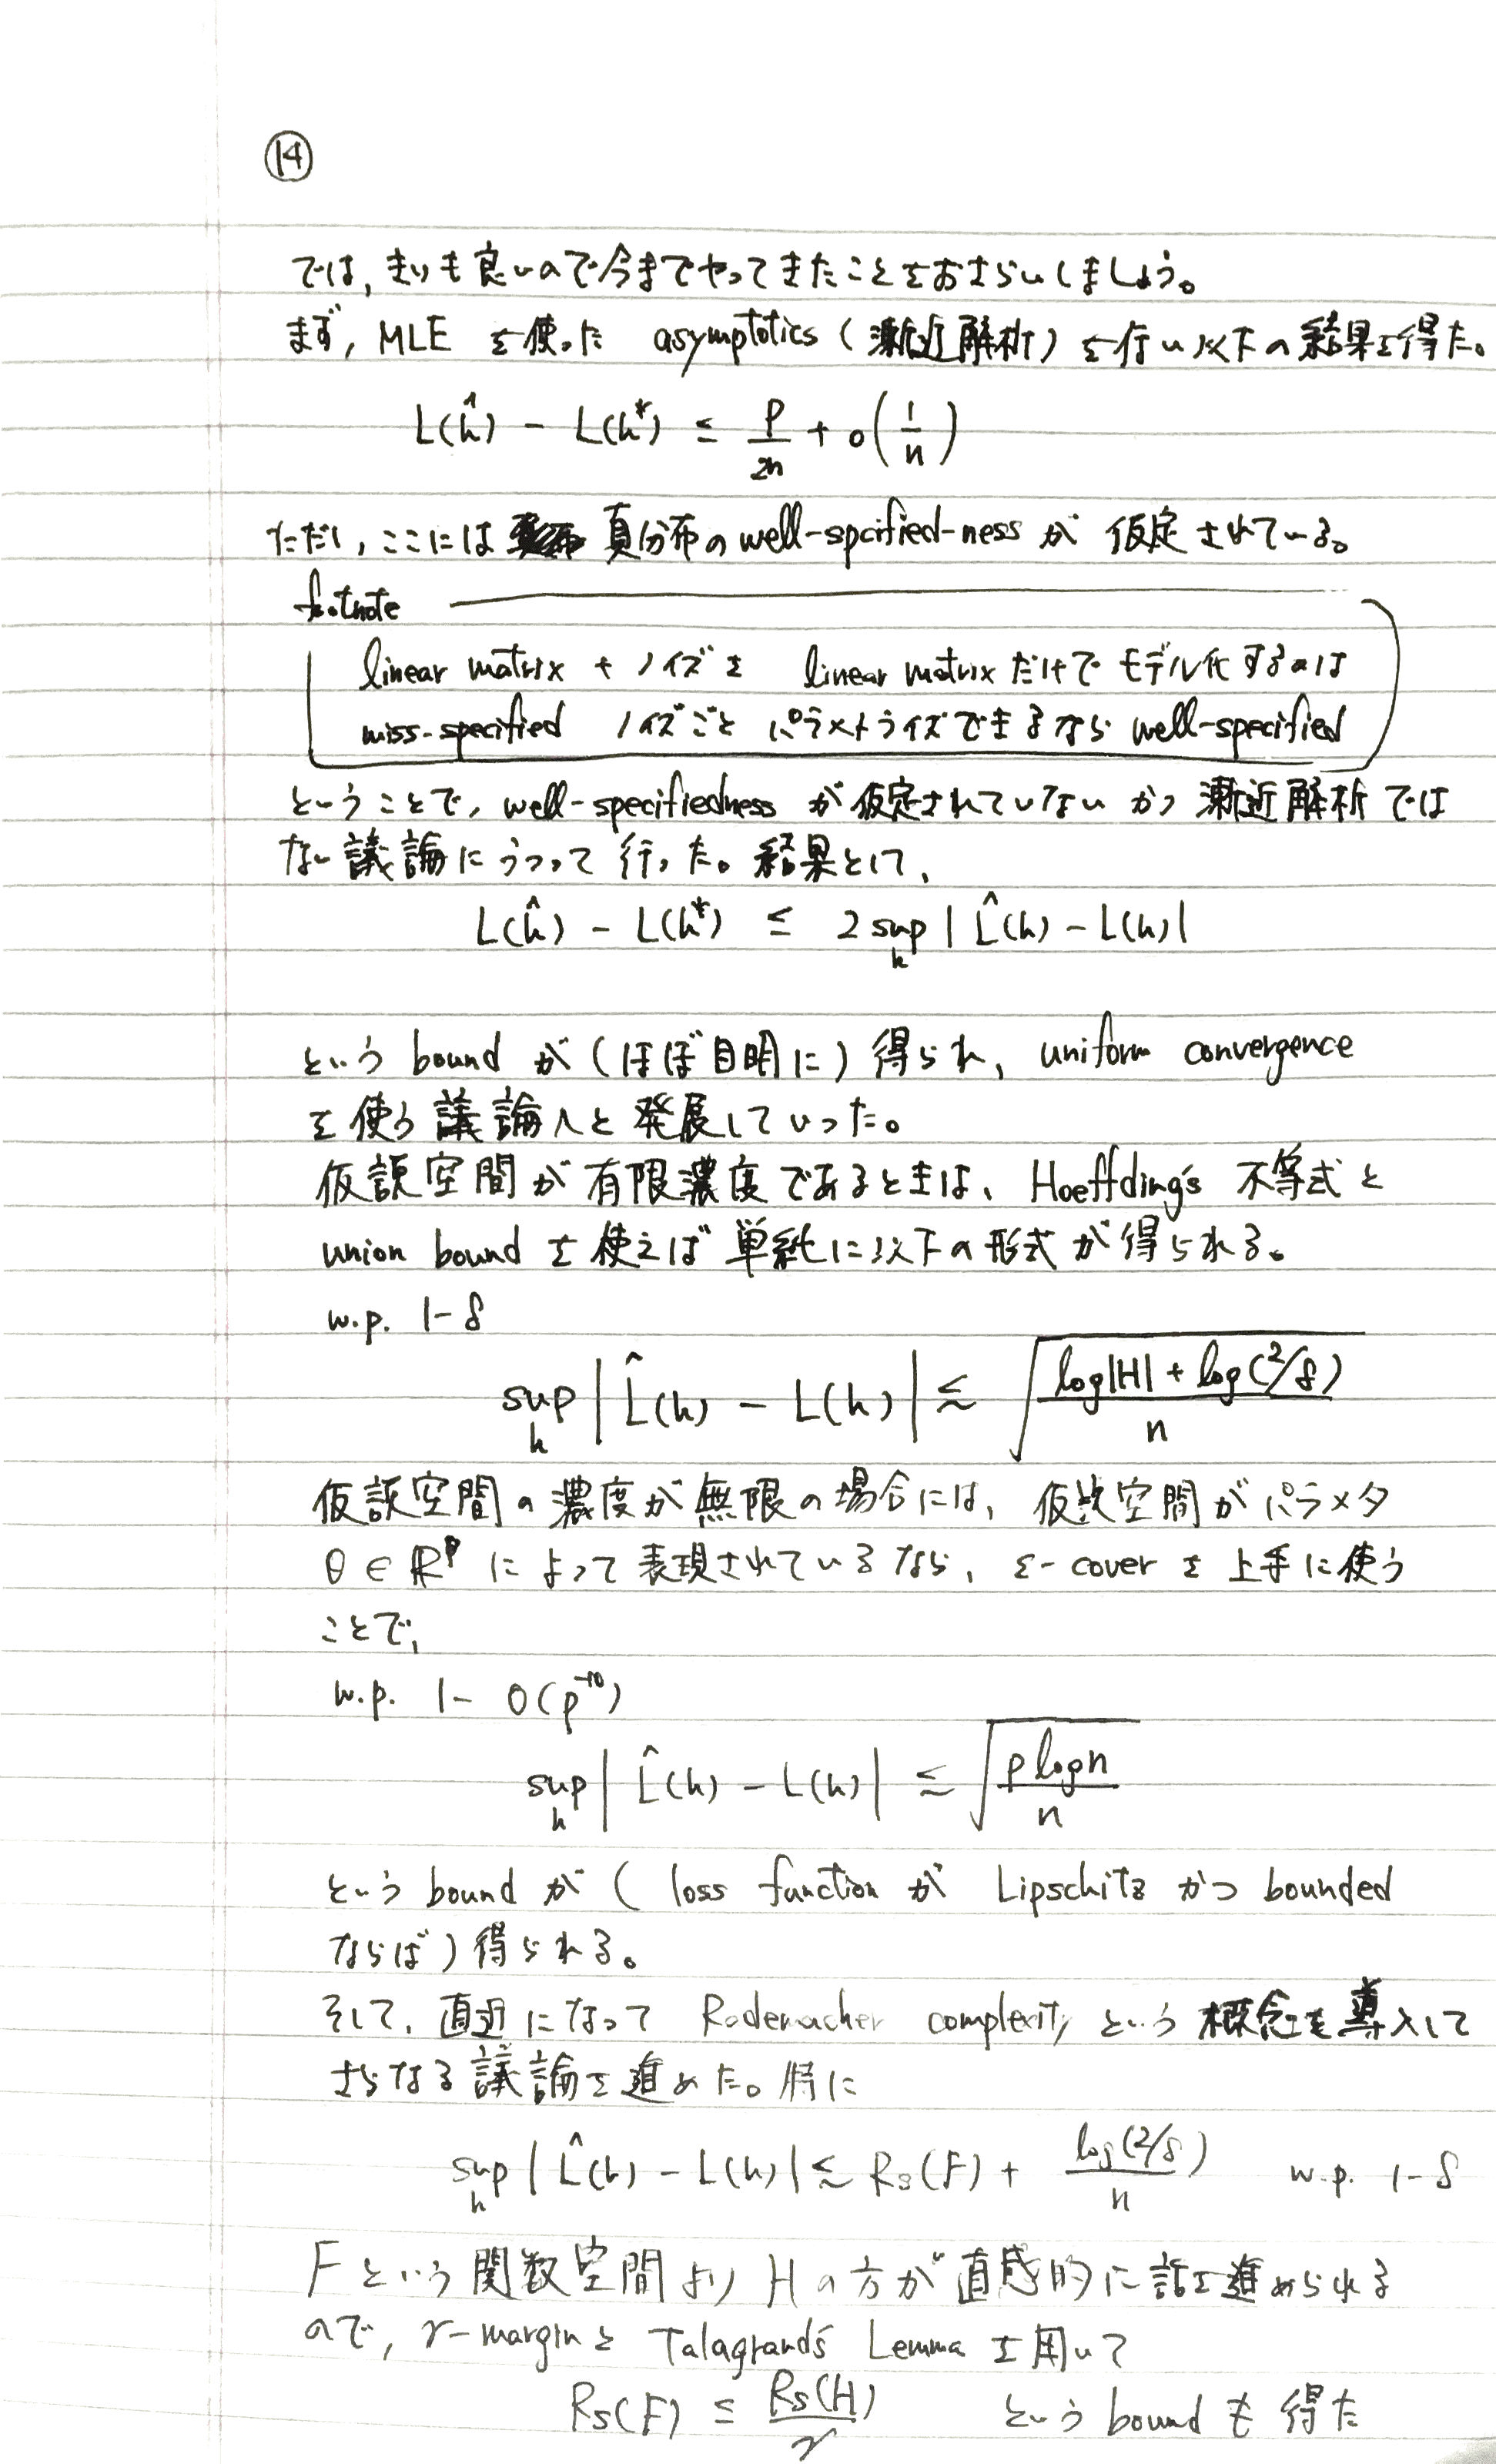 ⑭
では, きりも良いので今までやってきたことをおさらいしましょう。
まず, MLE を使った asymptotics (漸近解析) を行い以下の結果を得た。
L(ĥ) - L(h*) ≤ p/2n + o(1/n)
ただし, ここには 真分布の well-spcified-ness が 仮定されている。
footnote
linear matrix + ノイズを linear matrix だけで モデル化するのは
miss-specified ノイズごと パラメトライズできるなら well-specified
ということで, well-specifiedness が仮定されていない かつ 漸近解析では
ない議論にうつって行った。結果として、
L(ĥ) - L(h*) ≤ 2 sup_h | L̂(h) - L(h) |
という bound が (ほぼ自明に) 得られ、uniform convergence
を使う議論へと発展していった。
仮説空間が有限濃度であるときは、Hoeffding's 不等式と
union bound を使えば単純に以下の形式が得られる。
w.p. 1-δ
sup_h | L̂(h) - L(h) | ≲ √((log|H| + log(2/δ))/n)
仮説空間の濃度が無限の場合には、仮説空間がパラメタ
θ ∈ ℝ^p によって表現されているなら、ε-cover を上手に使う
ことで、
w.p. 1 - O(p^-10)
sup_h | L̂(h) - L(h) | ≲ √(p log n/n)
という bound が ( loss function が Lipschitz かつ bounded
ならば) 得られる。
そして、直近になって Rademacher complexity という 概念を導入して
さらなる議論を進めた。特に
sup_h | L̂(h) - L(h) | ≲ Rs(F) + log(2/δ)/n w.p. 1-δ
F という関数空間より H の方が直感的に話を進められる
ので, γ-margin と Talagrand's Lemma を用いて
Rs(F) ≤ Rs(H)/γ という bound も 得た